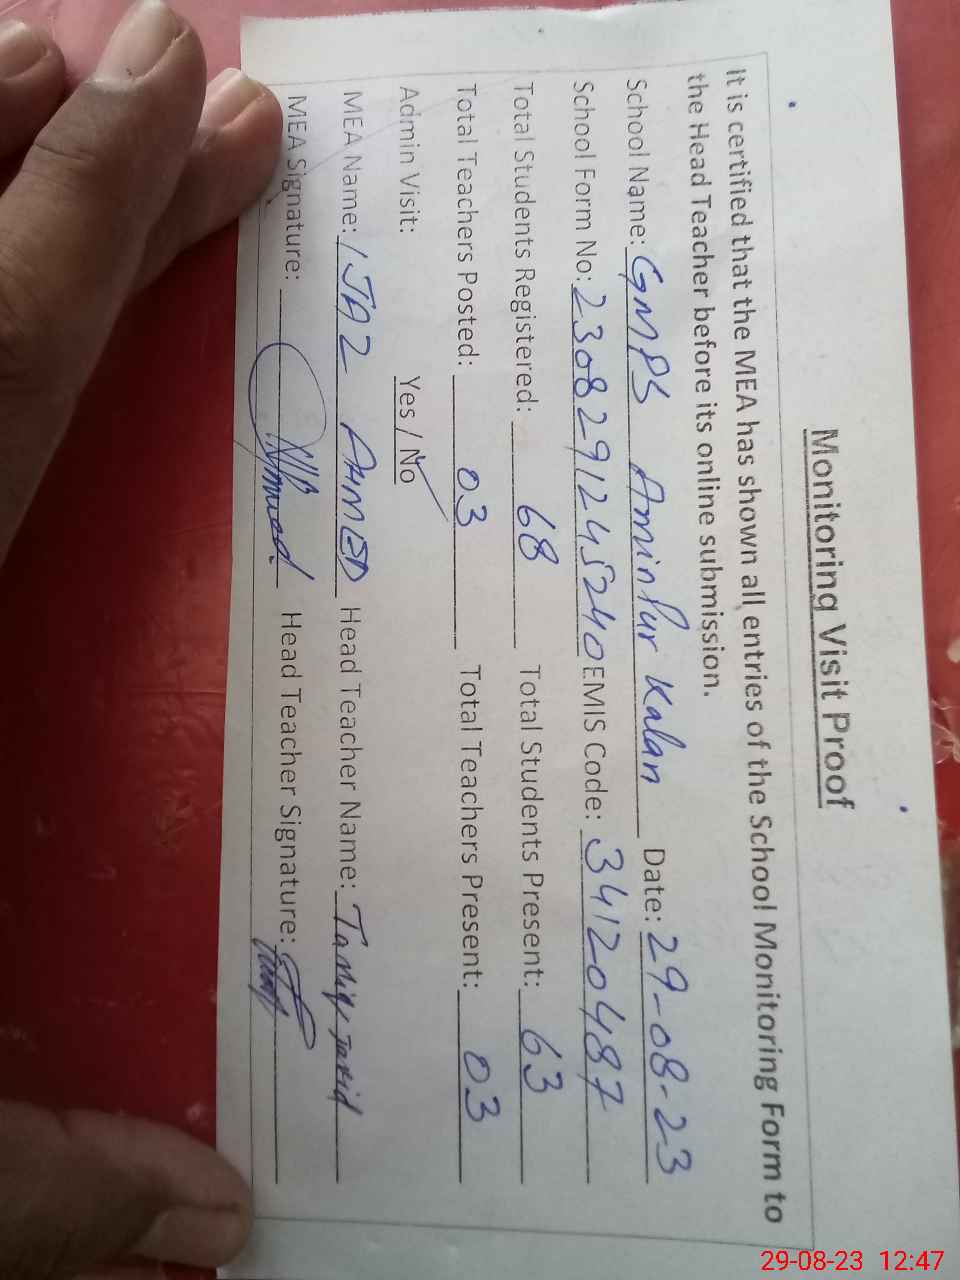 Monitoring Visit Proof
It is certified that the MEA has shown all entries of the School Monitoring Form to
the Head Teacher before its online submission.
School Name: GMPS Aminpur Kalan Date: 29-08-23
School Form No: 2308291245240 EMIS Code: 34120487
Total Students Registered: 68 Total Students Present: 63
Total Teachers Posted: 03 Total Teachers Present: 03
Admin Visit: Yes / No
MEA Name: IJAZ AHMED Head Teacher Name:
MEA Signature: Head Teacher Signature:
29-08-23 12:47